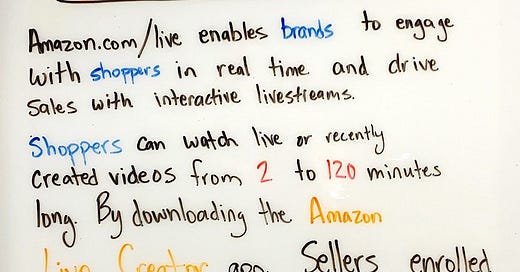 Amazon.com/live enables brands to engage
with shoppers in real time and drive
sales with interactive livestreams.
Shoppers can watch live or recently
created videos from 2 to 120 minutes
long. By downloading the Amazon
Live Creator app, Sellers enrolled